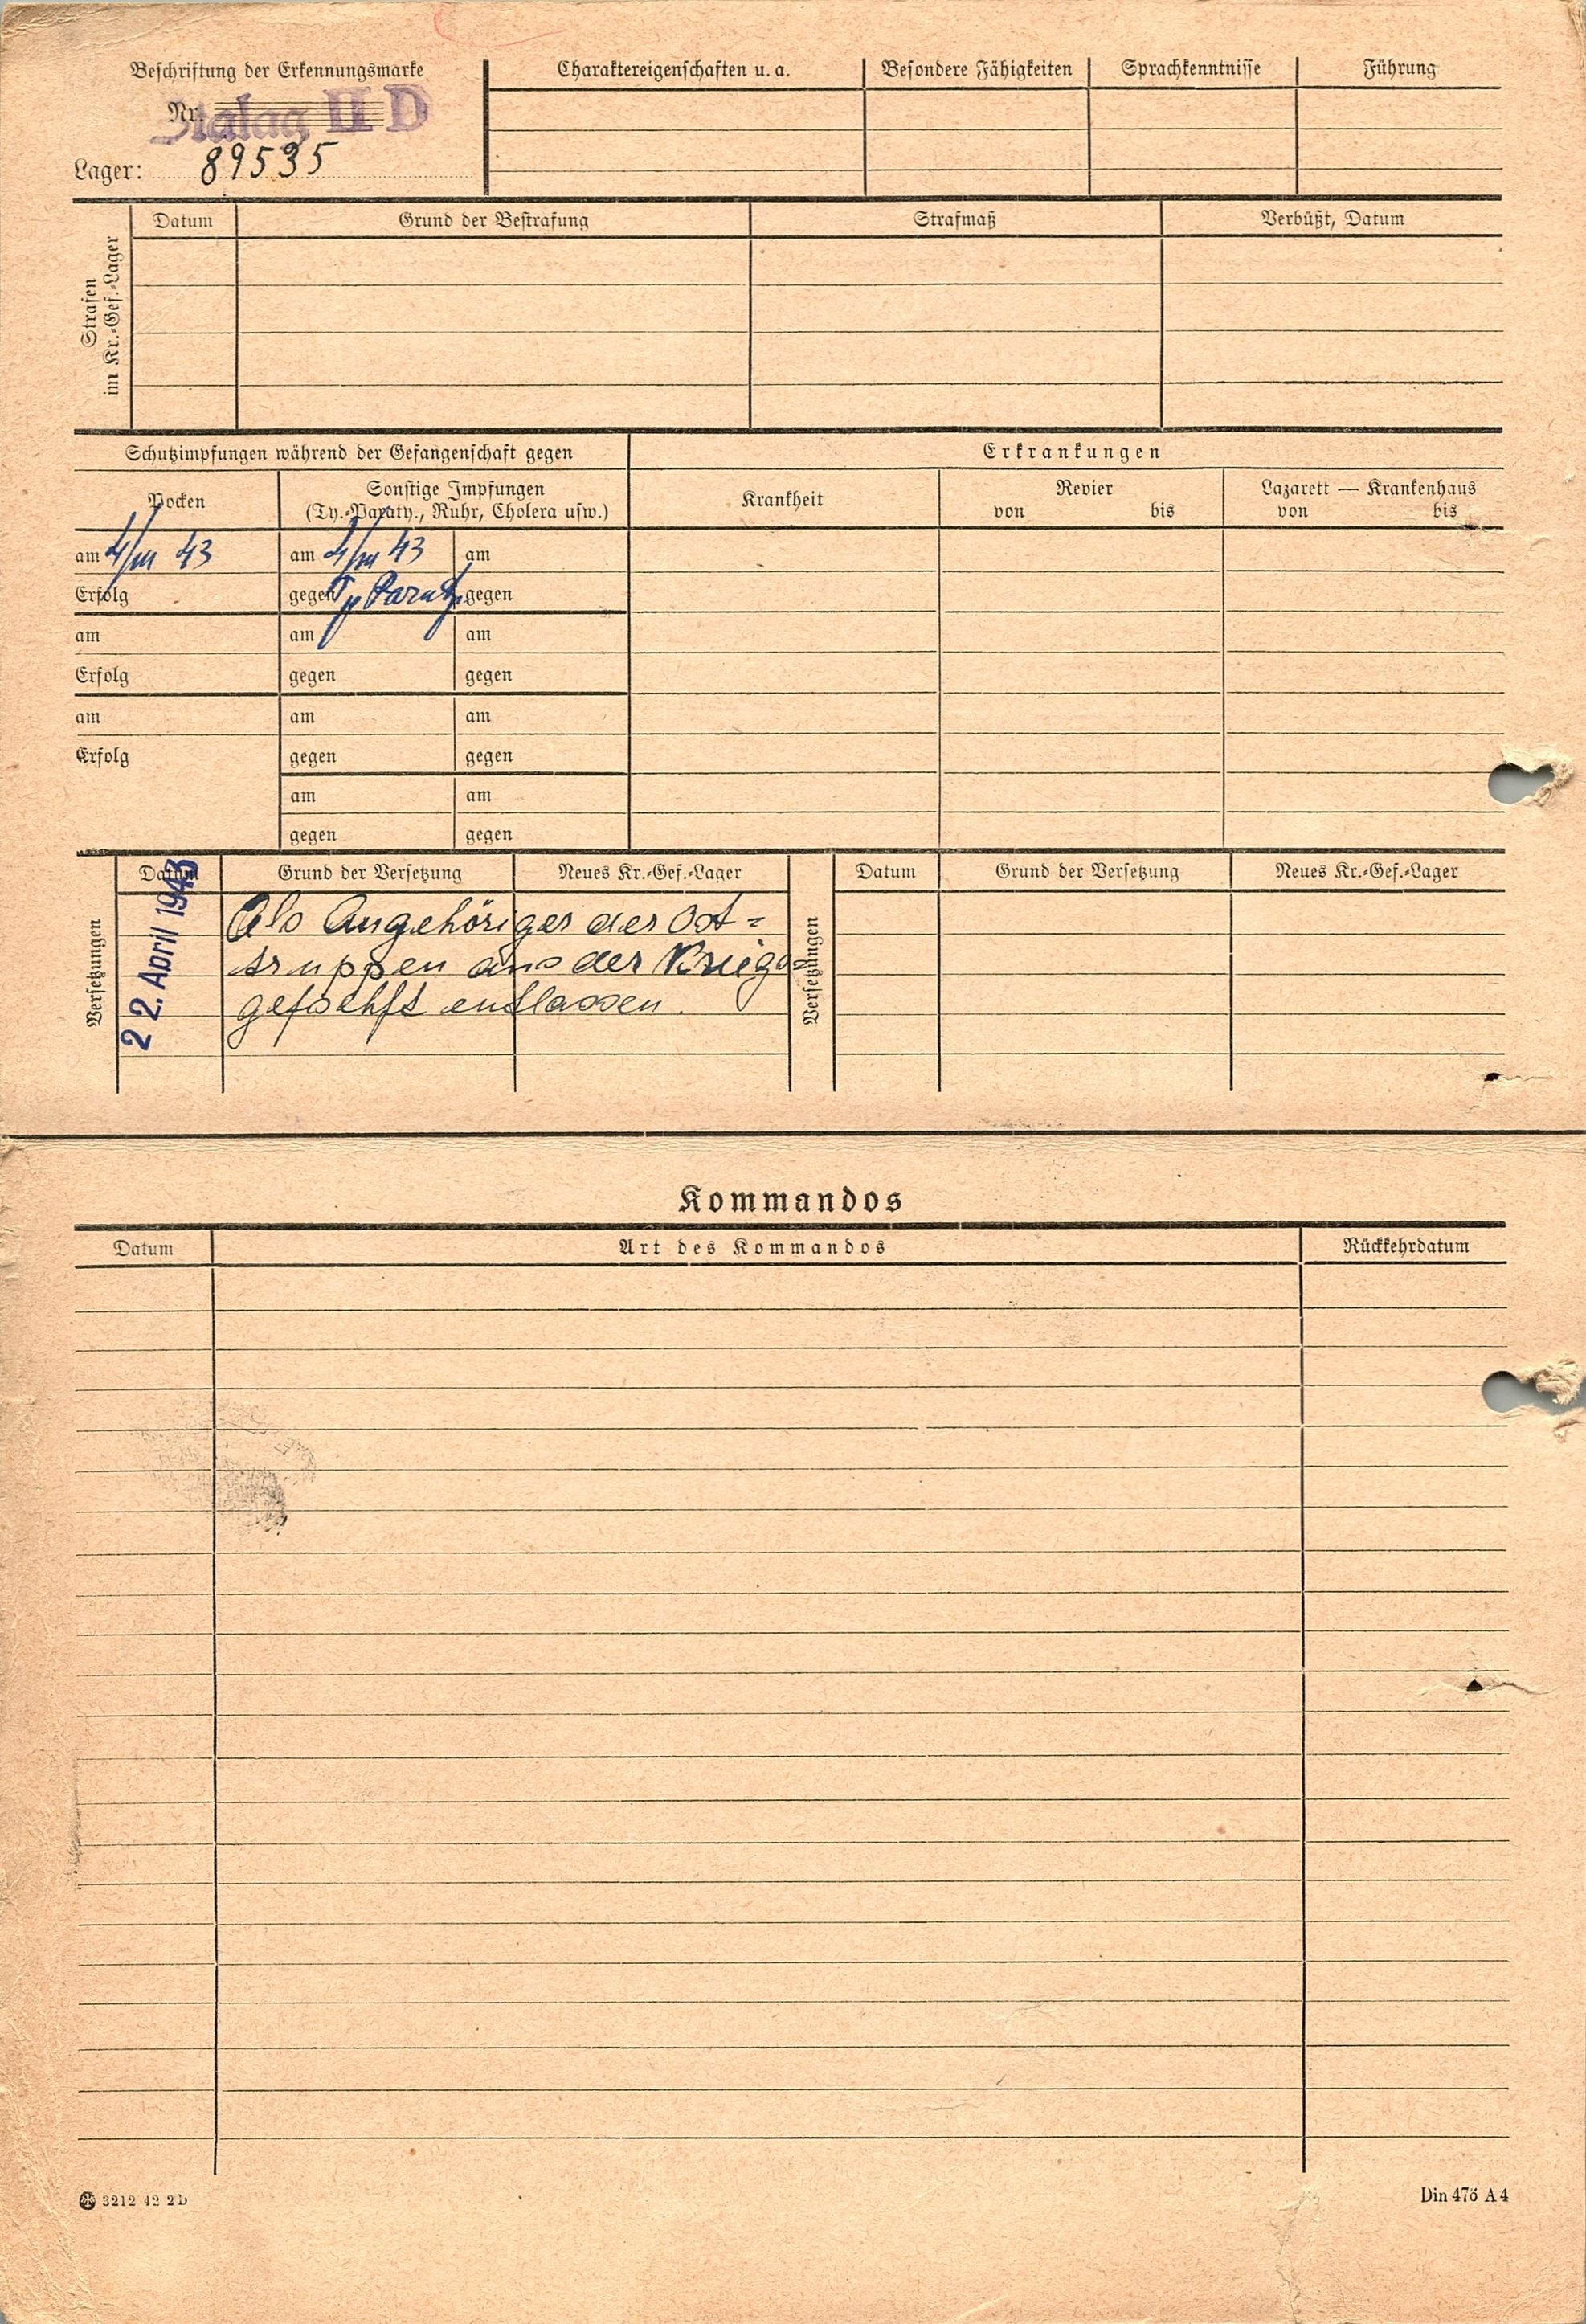 Beschriftung der Erkennungsmarke
Nr. Stalag II D
Lager: 89535
Charaktereigenschaften u. a.
Besondere Fähigkeiten
Sprachkenntnisse
Führung
Strafen
im Kr.-Gef.-Lager
Datum
Grund der Bestrafung
Strafmaß
Verbüßt, Datum
Schutzimpfungen während der Gefangenschaft gegen
Erkrankungen
Pocken
Sonstige Impfungen
(Ty.-Paraty., Ruhr, Cholera usw.)
Krankheit
Revier
von bis
Lazarett — Krankenhaus
von bis
am 4/III 43 am 4/III 43 am
Erfolg gegen Ty Paraty. gegen
am am am
Erfolg gegen gegen
am am am
Erfolg gegen gegen
am am
gegen gegen
Versetzungen
Datum Grund der Versetzung Neues Kr.-Gef.-Lager
22. April 1943
Als Angehöriger der Ost=
truppen aus der Kriegs=
gefschft entlassen.
Versetzungen
Datum Grund der Versetzung Neues Kr.-Gef.-Lager
Kommandos
Datum Art des Kommandos Rückkehrdatum
3212 42 2D
Din 476 A4